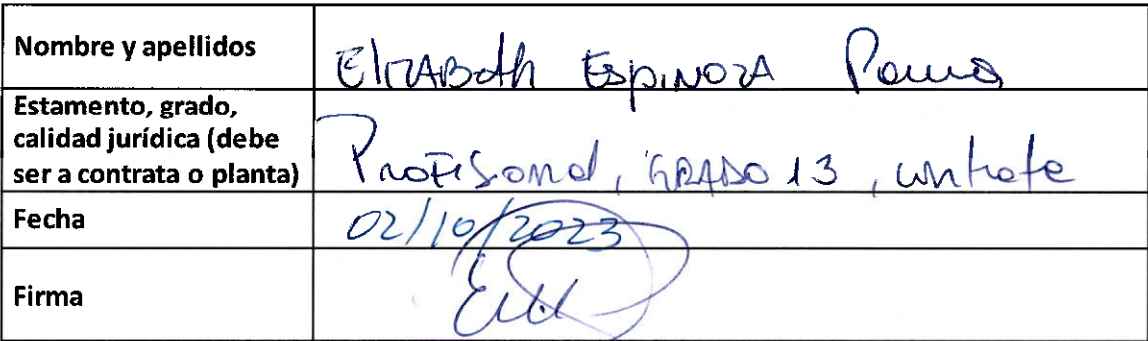 Nombre y apellidos
ElizABeth EspiNozA
Estamento, grado,
calidad jurídica (debe
ser a contrata o planta)
Profesional, GRADO 13, contrata
Fecha
02/10/2023
Firma